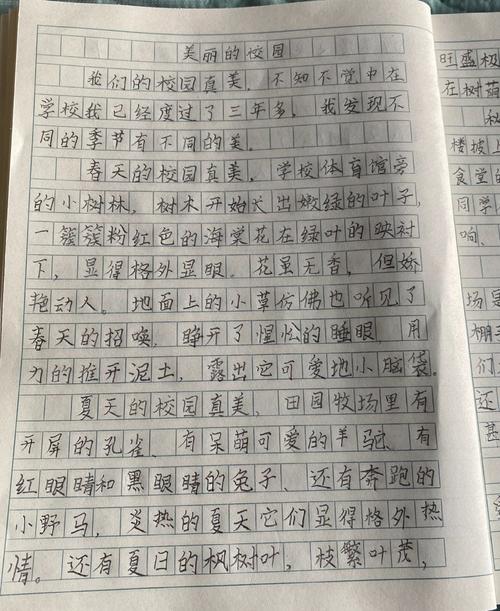 美丽的校园
我们的校园真美。不知不觉中在
学校我已经度过了三年多，我发现不
同的季节有不同的美。
春天的校园真美，学校体育馆旁
的小树林，树木开始长出嫩绿的叶子，
一簇簇粉红色的海棠花在绿叶的映衬
下，显得格外显眼。花虽无香，但娇
艳动人。地面上的小草仿佛也听见了
春天的招唤，睁开了惺忪的睡眼，用
力的推开泥土，露出它可爱地小脑袋。
夏天的校园真美，田园牧场里有
开屏的孔雀、有呆萌可爱的羊驼、有
红眼睛和黑眼睛的兔子、还有奔跑的
小野马，炎热的夏天它们显得格外热
情。还有夏日的枫树叶，枝繁叶茂，
旺盛极
在树荫
秘
楼坡上
食堂的
同学
响、
场里
棚子
们
甚